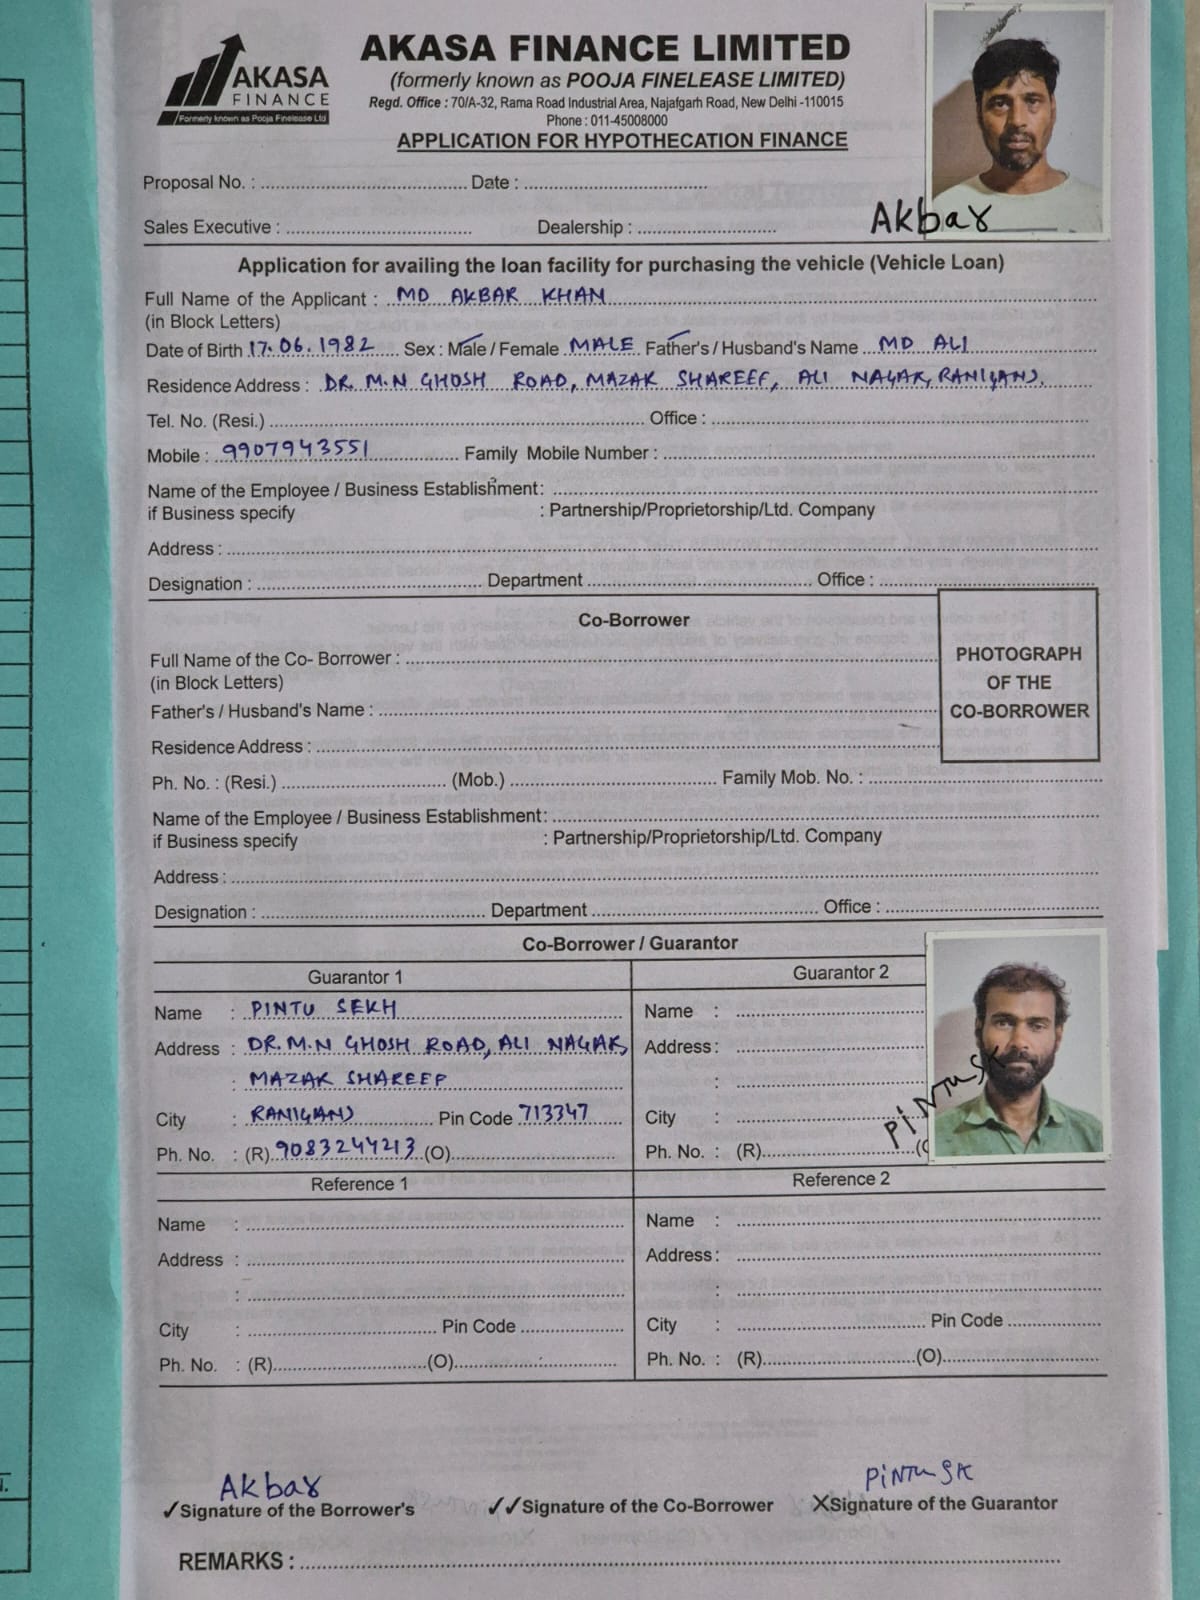 AKASA FINANCE LIMITED
AKASA
FINANCE
Formerly known as Pooja Finelease Ltd
(formerly known as POOJA FINELEASE LIMITED)
Regd. Office : 70/A-32, Rama Road Industrial Area, Najafgarh Road, New Delhi -110015
Phone : 011-45008000
APPLICATION FOR HYPOTHECATION FINANCE
Proposal No. : Date :
Sales Executive : Dealership :
Akbar
Application for availing the loan facility for purchasing the vehicle (Vehicle Loan)
Full Name of the Applicant : MD AKBAR KHAN
(in Block Letters)
Date of Birth 17.06.1982 Sex : Male / Female MALE Father's / Husband's Name MD ALI
Residence Address : DR. M.N GHOSH ROAD, MAZAR SHAREEF, ALI NAGAR, RANIGANJ.
Tel. No. (Resi.) Office :
Mobile : 9907943551 Family Mobile Number :
Name of the Employee / Business Establishment:
if Business specify : Partnership/Proprietorship/Ltd. Company
Address :
Designation : Department Office :
Co-Borrower
PHOTOGRAPH
OF THE
CO-BORROWER
Full Name of the Co- Borrower :
(in Block Letters)
Father's / Husband's Name :
Residence Address :
Ph. No. : (Resi.) (Mob.) Family Mob. No. :
Name of the Employee / Business Establishment:
if Business specify : Partnership/Proprietorship/Ltd. Company
Address :
Designation : Department Office :
Co-Borrower / Guarantor
Guarantor 1
Name : PINTU SEKH
Address : DR. M.N GHOSH ROAD, ALI NAGAR,
: MAZAR SHAREEF
City : RANIGANJ Pin Code 713347
Ph. No. : (R) 9083244213 (O)
Guarantor 2
Name :
Address :
:
City :
Ph. No. : (R) (O
PiNTu SK
Reference 1
Name :
Address :
:
City : Pin Code
Ph. No. : (R) (O)
Reference 2
Name :
Address :
:
City : Pin Code
Ph. No. : (R) (O)
Akbar
PiNTu SK
✓Signature of the Borrower's ✓✓Signature of the Co-Borrower XSignature of the Guarantor
REMARKS :